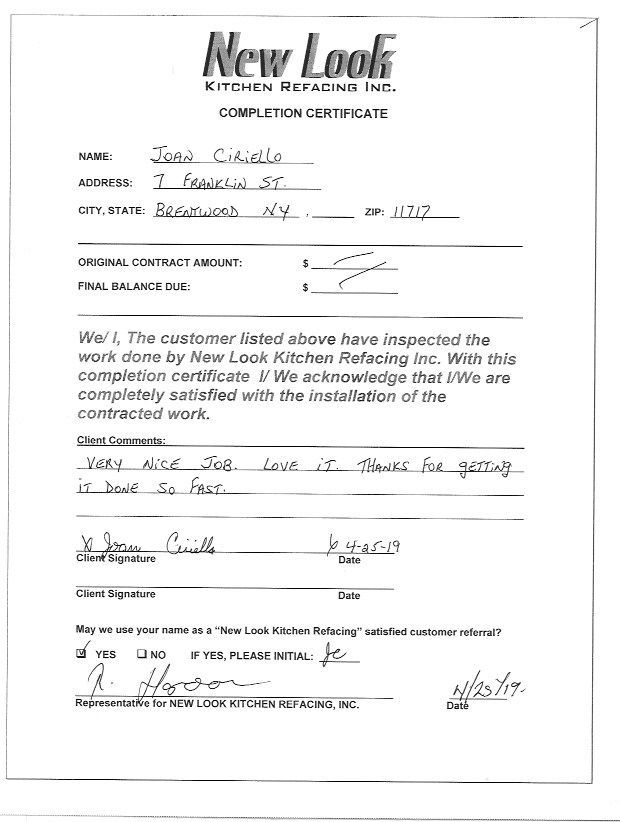 New Look
KITCHEN REFACING INC.
COMPLETION CERTIFICATE
NAME: JOAN CIRIELLO
ADDRESS: 7 FRANKLIN ST.
CITY, STATE: BRENTWOOD NY , ZIP: 11717
ORIGINAL CONTRACT AMOUNT: $
FINAL BALANCE DUE: $
We/ I, The customer listed above have inspected the
work done by New Look Kitchen Refacing Inc. With this
completion certificate I/ We acknowledge that I/We are
completely satisfied with the installation of the
contracted work.
Client Comments:
VERY NICE JOB. LOVE IT. THANKS FOR GETTING
IT DONE SO FAST.
X Joan Ciriello 4-25-19
Client Signature Date
Client Signature Date
May we use your name as a “New Look Kitchen Refacing” satisfied customer referral?
☑ YES ☐ NO IF YES, PLEASE INITIAL: Jc
R. 4/25/19
Representative for NEW LOOK KITCHEN REFACING, INC. Date